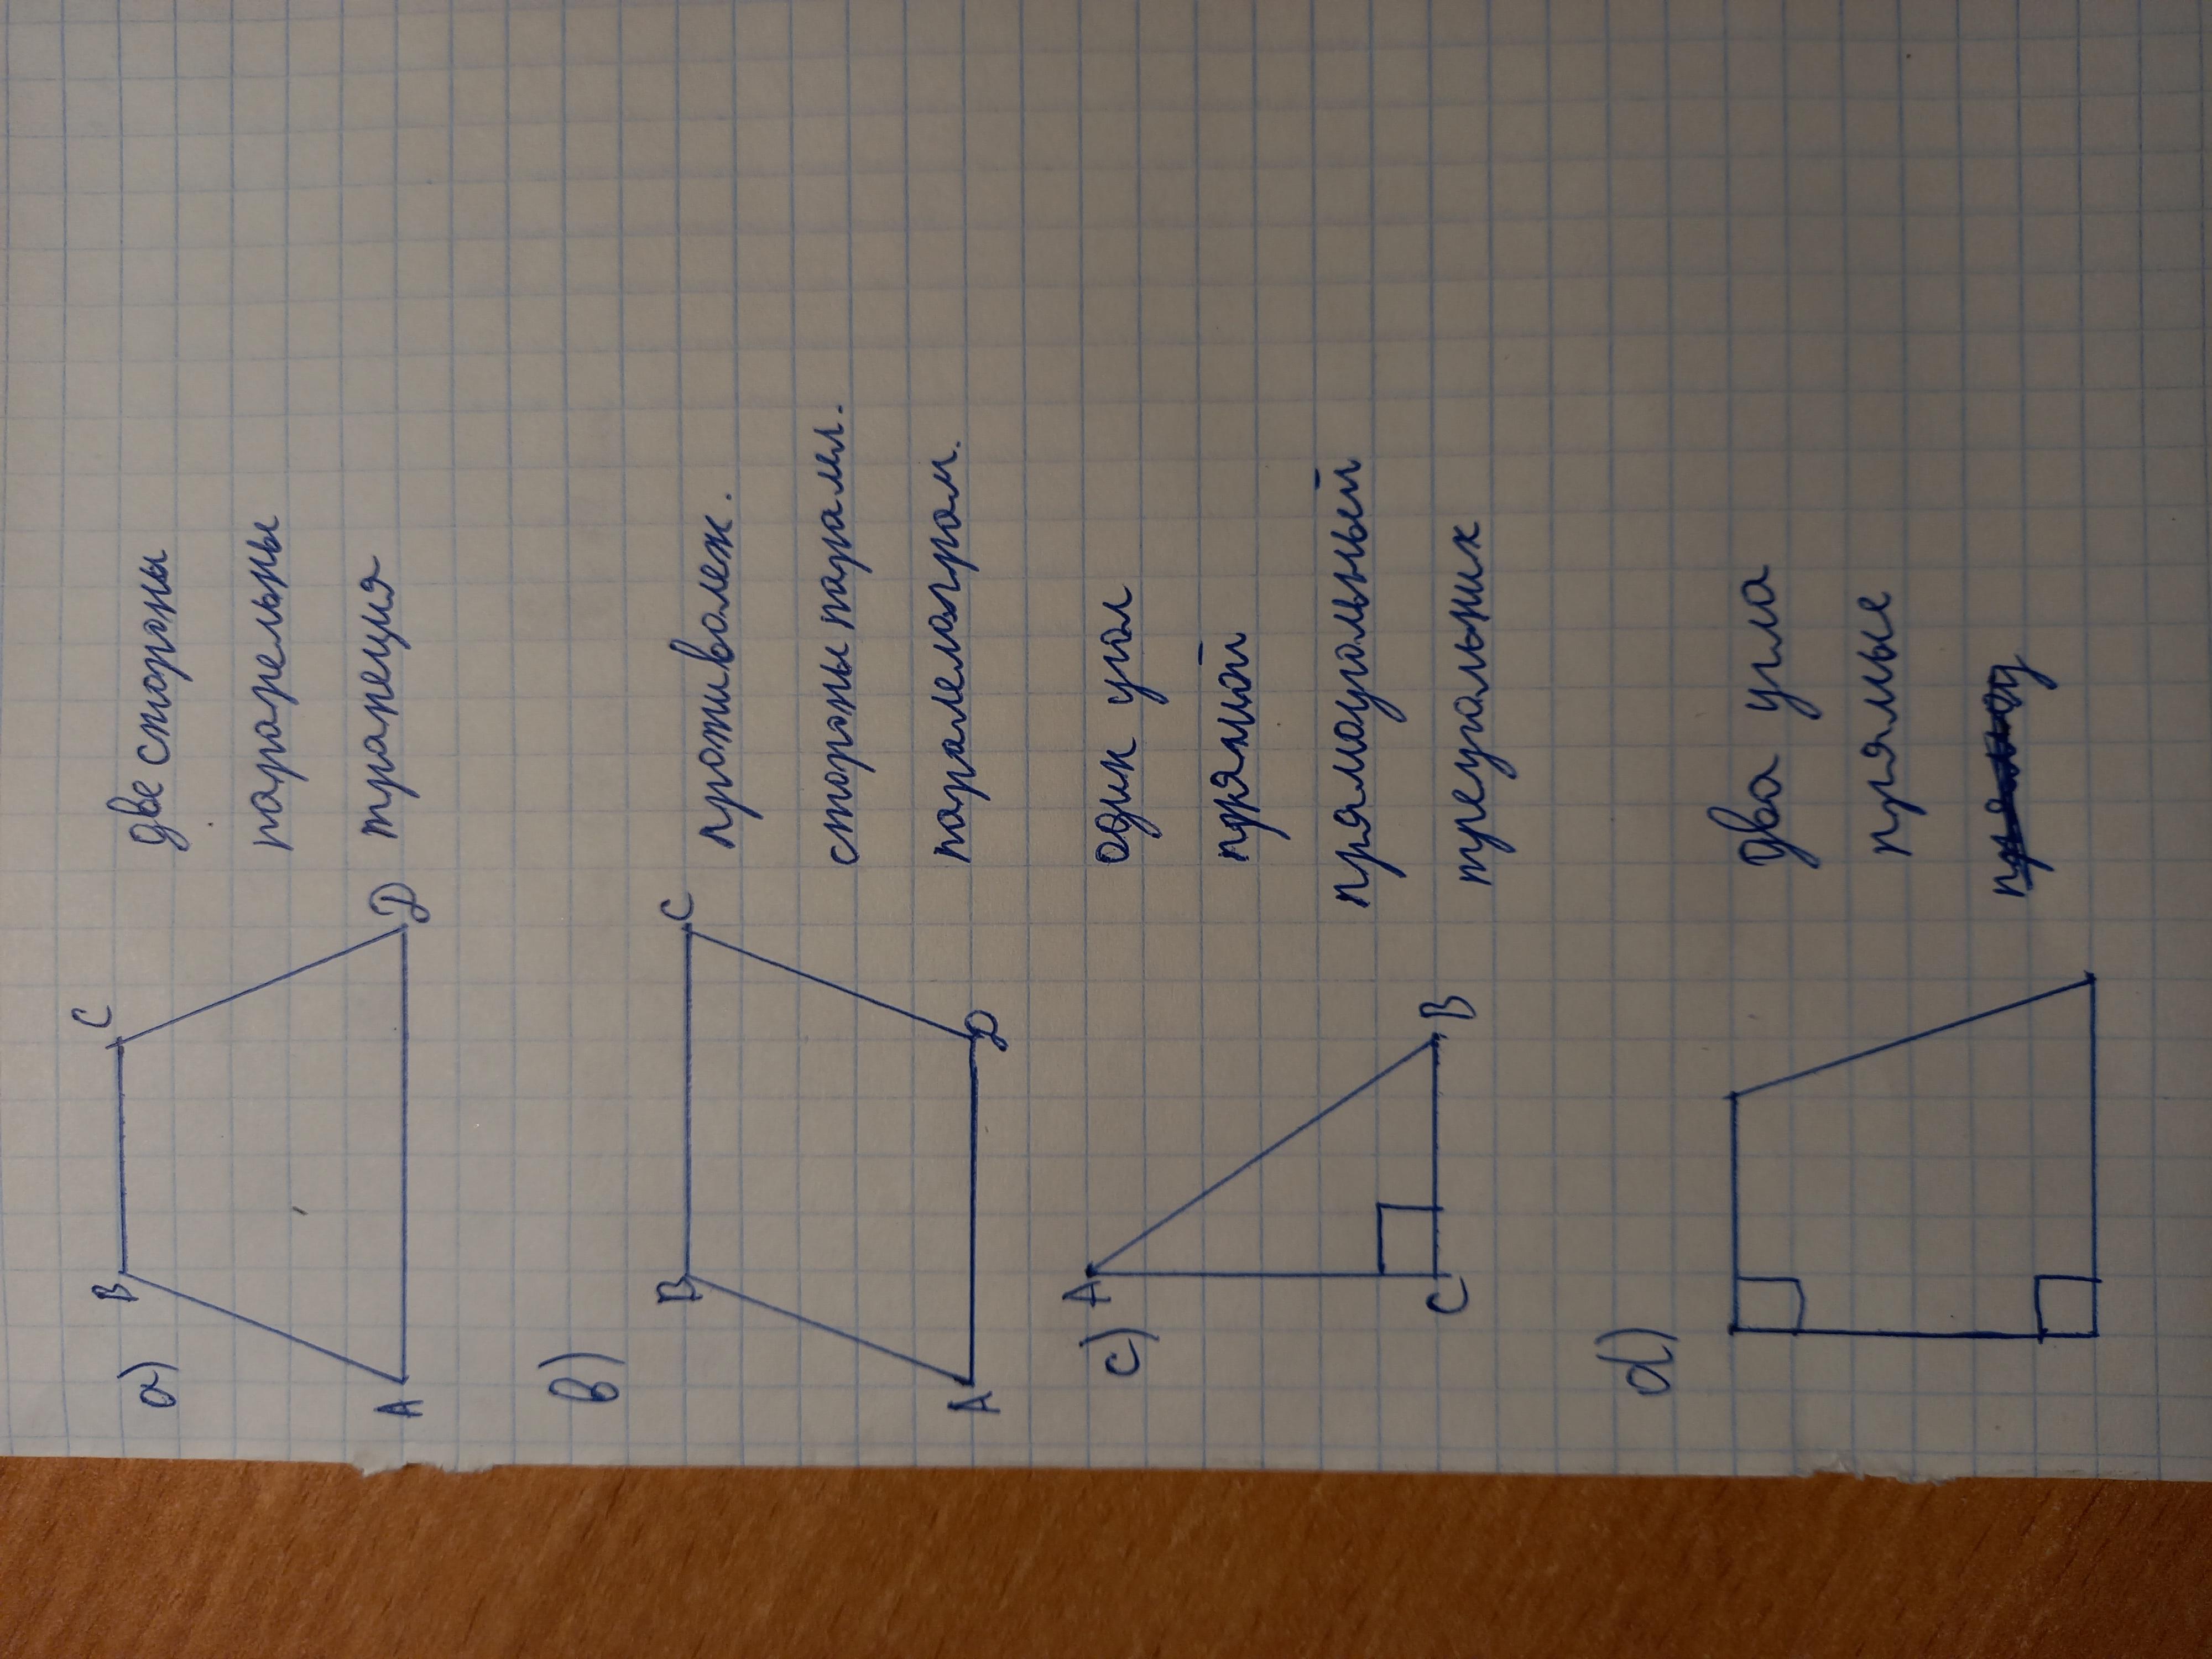 a)
B C
A D
две стороны
парарельны
трапеция
в)
B C
A D
противолеж.
стороны паралл.
паралелограм.
c)
A
C B
один угол
прямой
прямоугольный
треугольник
d)
два угла
прямые